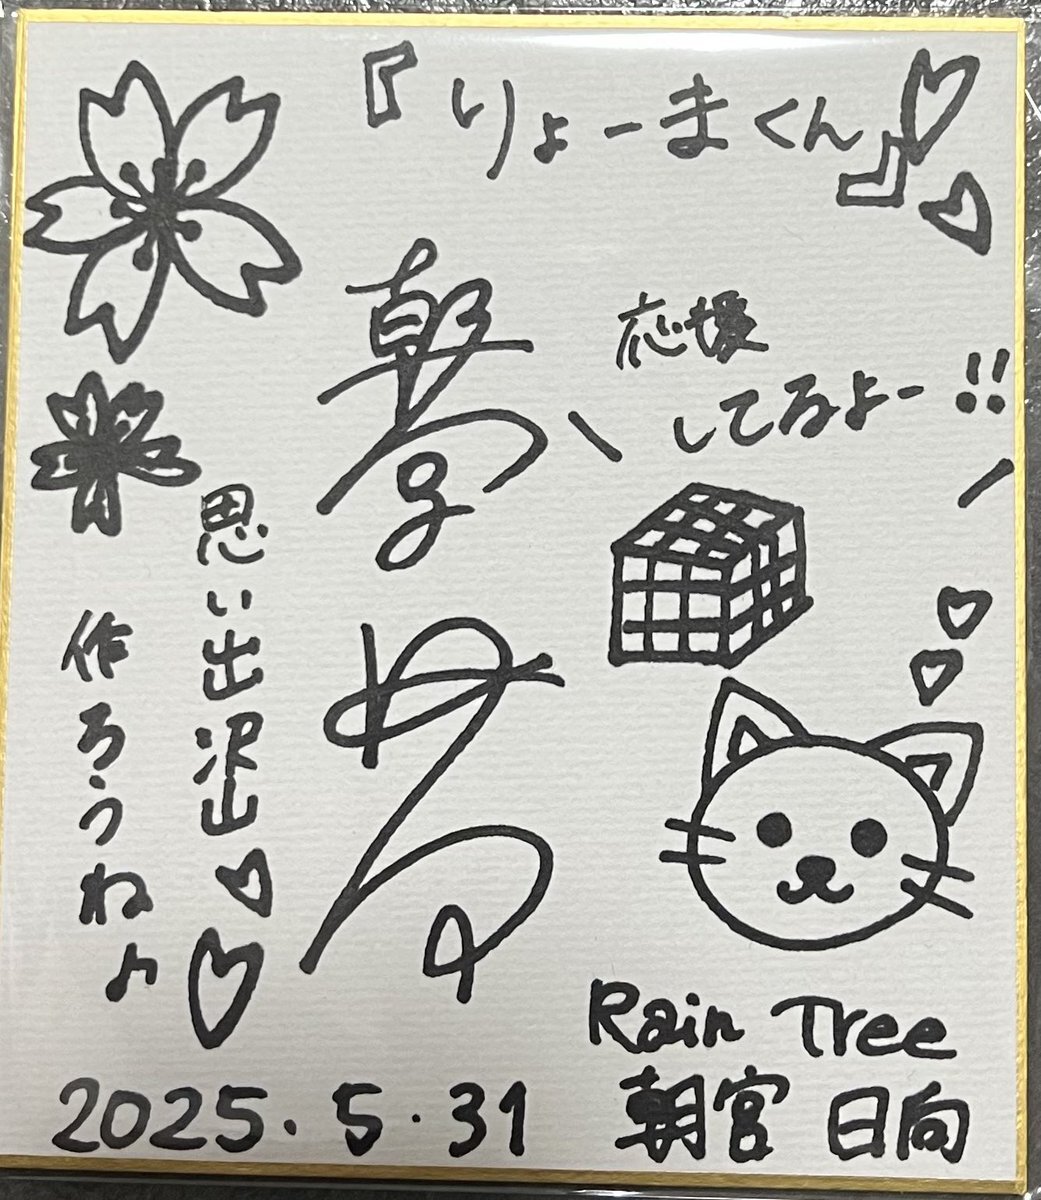 『りょーまくん』
応援
してるよー!!
思い出沢山
作ろうね♪
Rain Tree
朝宮 日向
2025.5.31